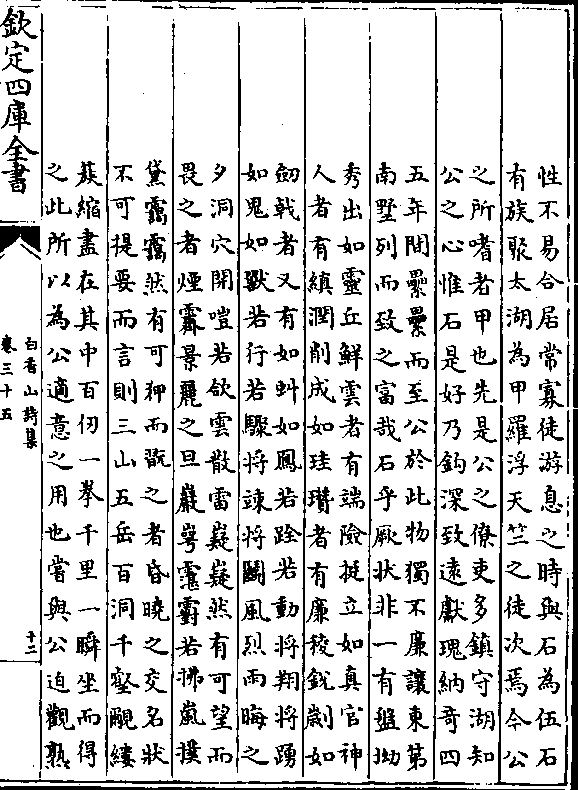 欽定四庫全書
性不易合居常寡徒游息之時與石為伍石
有族聚太湖為甲羅浮天竺之徒次焉今公
之所嗜者甲也先是公之僚吏多鎮守湖知
公之心惟石是好乃鈎深致遠獻瑰納奇四
五年間纍纍而至公於此物獨不廉讓東第
南墅列而致之富哉石乎厥狀非一有盤拗
秀出如靈丘鮮雲者有端險挺立如真官神
人者有縝潤削成如珪瓚者有廉稜銳劌如
劒戟者又有如虯如鳳若跧若動將翔將踴
如鬼如獸若行若驟將竦將鬭風烈雨晦之
夕洞穴開若欱雲散雷嶷嶷然有可望而
畏之者煙霽景麗之旦巖崿霮䨴若拂嵐撲
黛靄靄然有可狎而翫之者昏曉之交名狀
不可提要而言則三山五岳百洞千壑覼縷
蔟縮盡在其中百仞一拳千里一瞬坐而得
之此所以為公適意之用也嘗與公迫觀熟
白香山詩集
卷三十五
十二